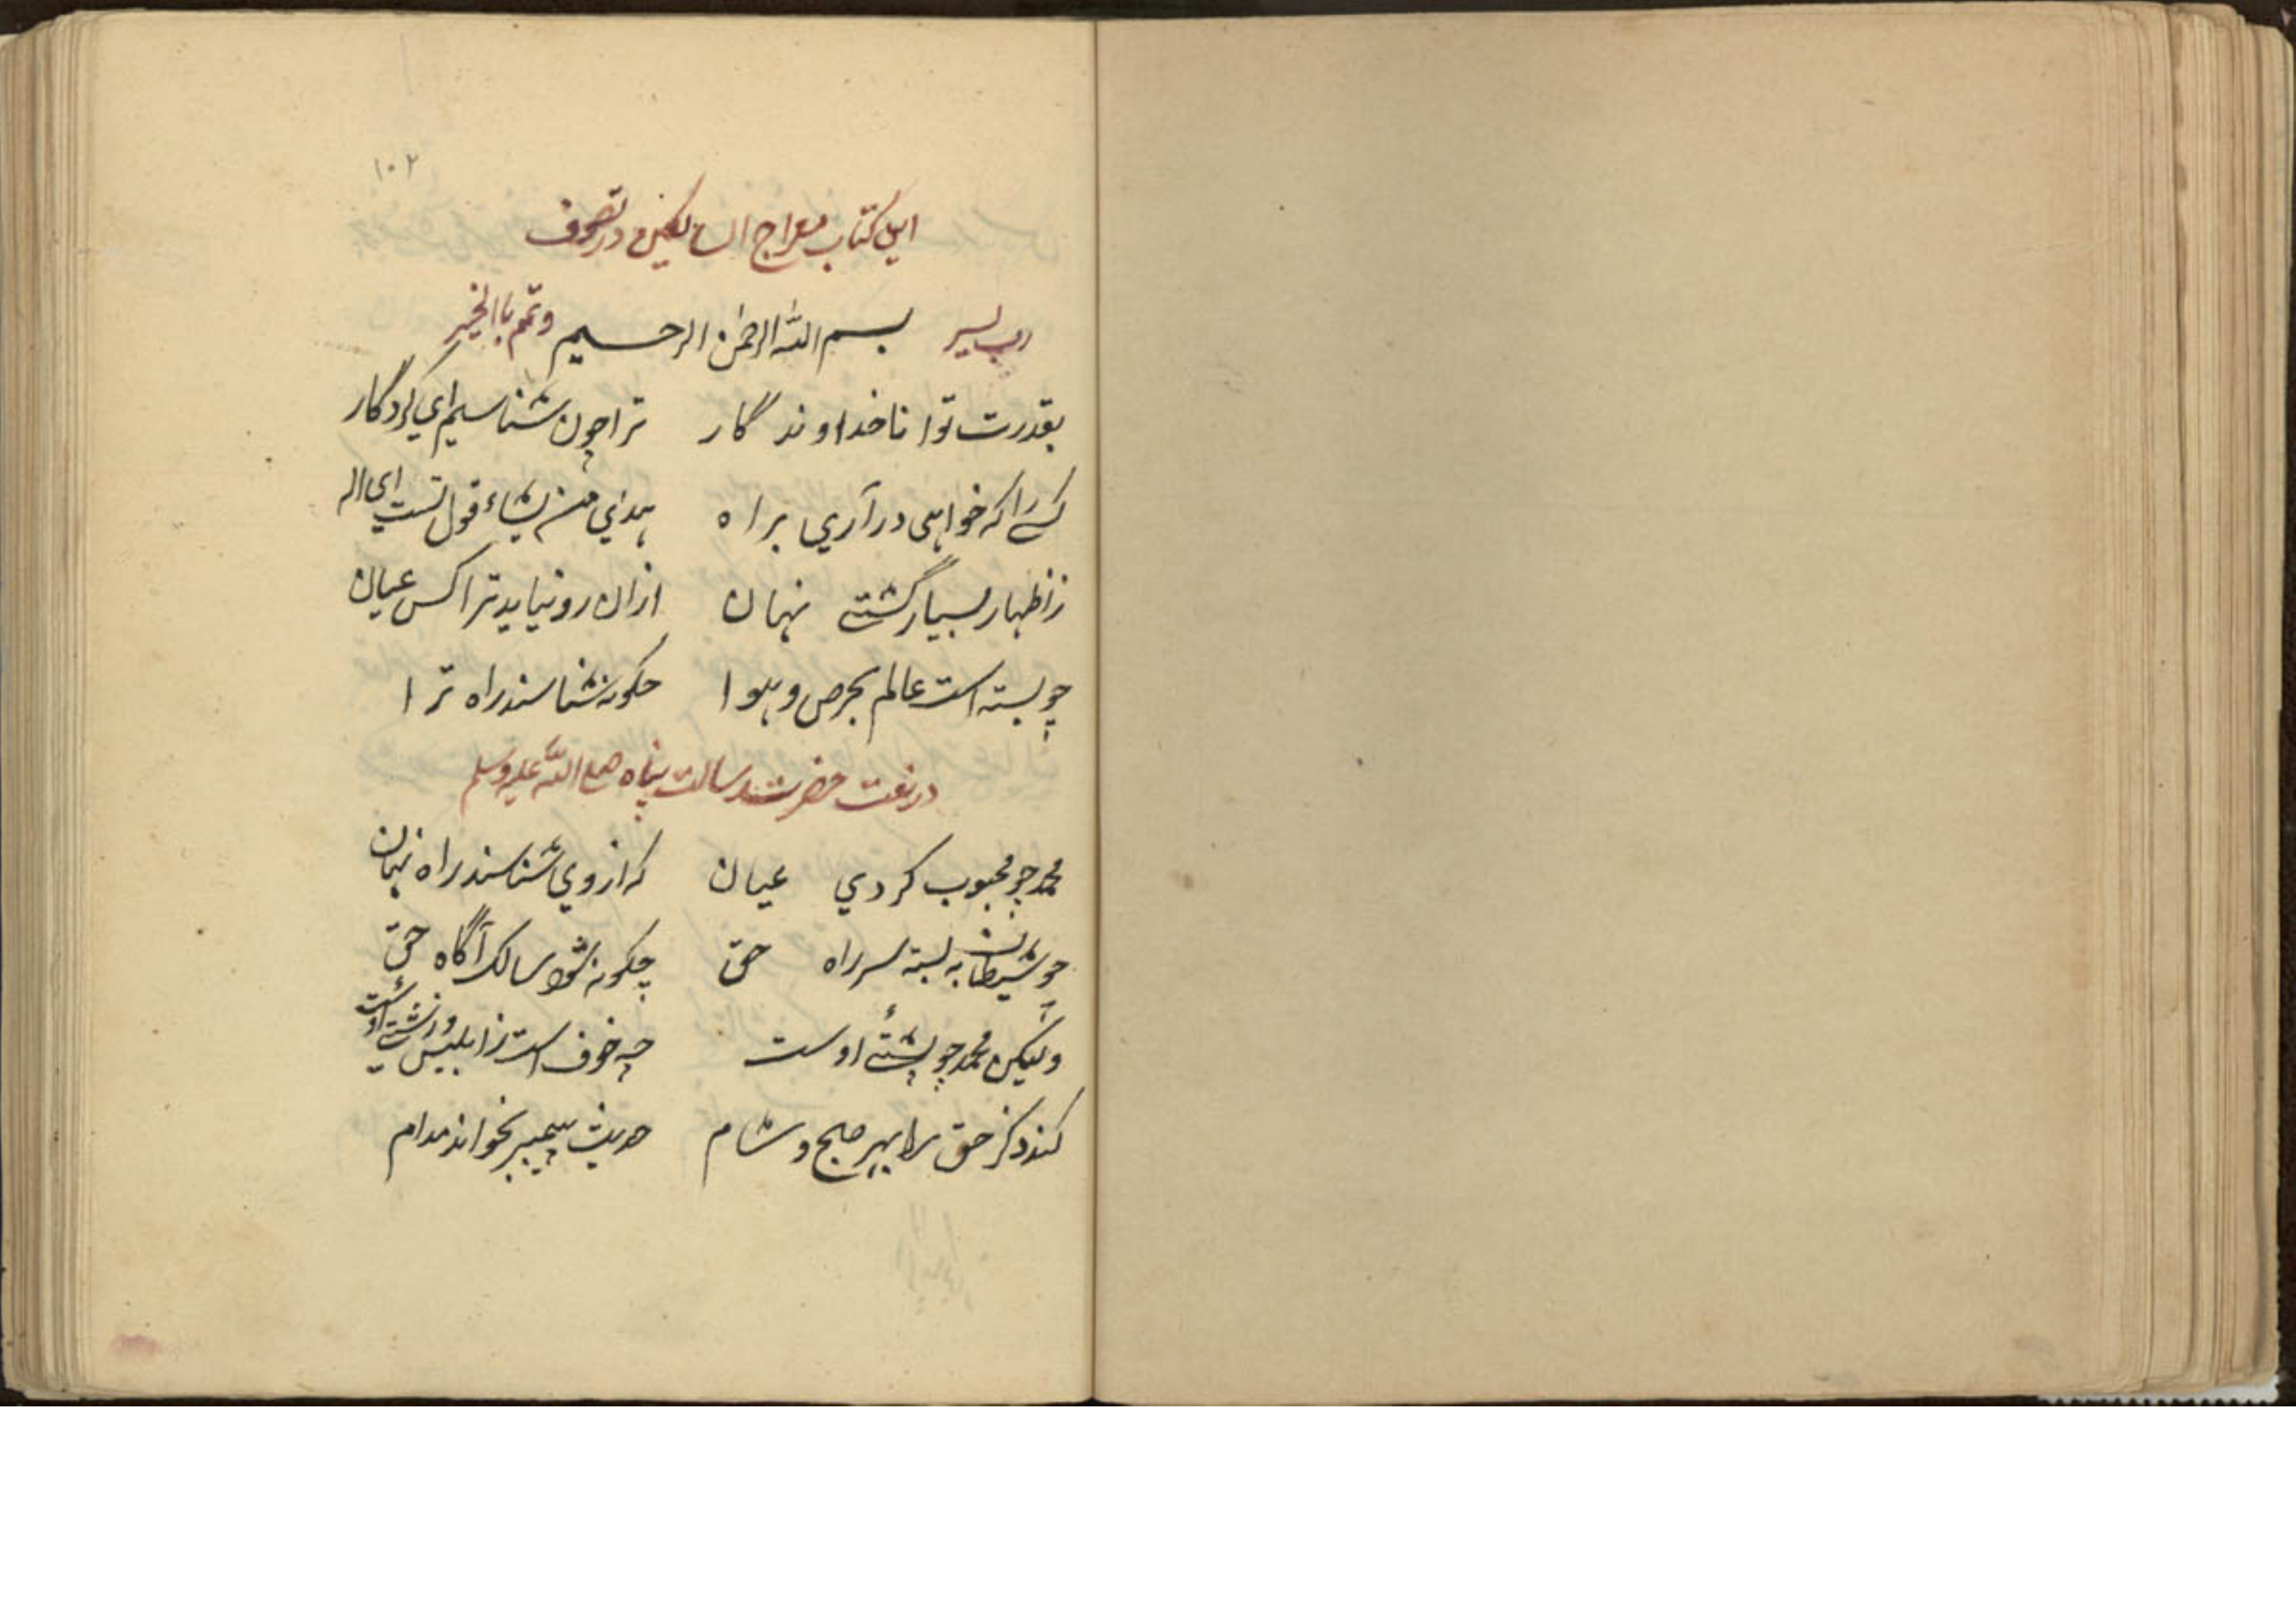 ۱۰۲
این کتاب معراج السالکین در تصوف
رب یسر بسم الله الرحمن الرحیم وتمم باالخیر
بقدرت توانا خداوندگار تراچون شناسیم ای کردگار
کسے را که خواهی درآری براه یهدی من یشاء قول تست ای اله
زاظهار بسیار گشتے نهان ازان رو نیاید ترا کس عیان
چو بسته است عالم بحرص و هوا چکونه شناسند راه ترا
در نعت حضرت رسالت پناه صلی الله علیه وسلم
محمد چو محبوب کردي عیان که از وي شناسند راه نهان
چو شیطان به بسته سر راه حق چکونه شود سالک آگاه حق
ولیکن محمد چو پشتے اوست چه خوف است زابلیس و زشتے
کند ذکر حق را بهر صبح و شام حدیث پیمبر بخواند مدام